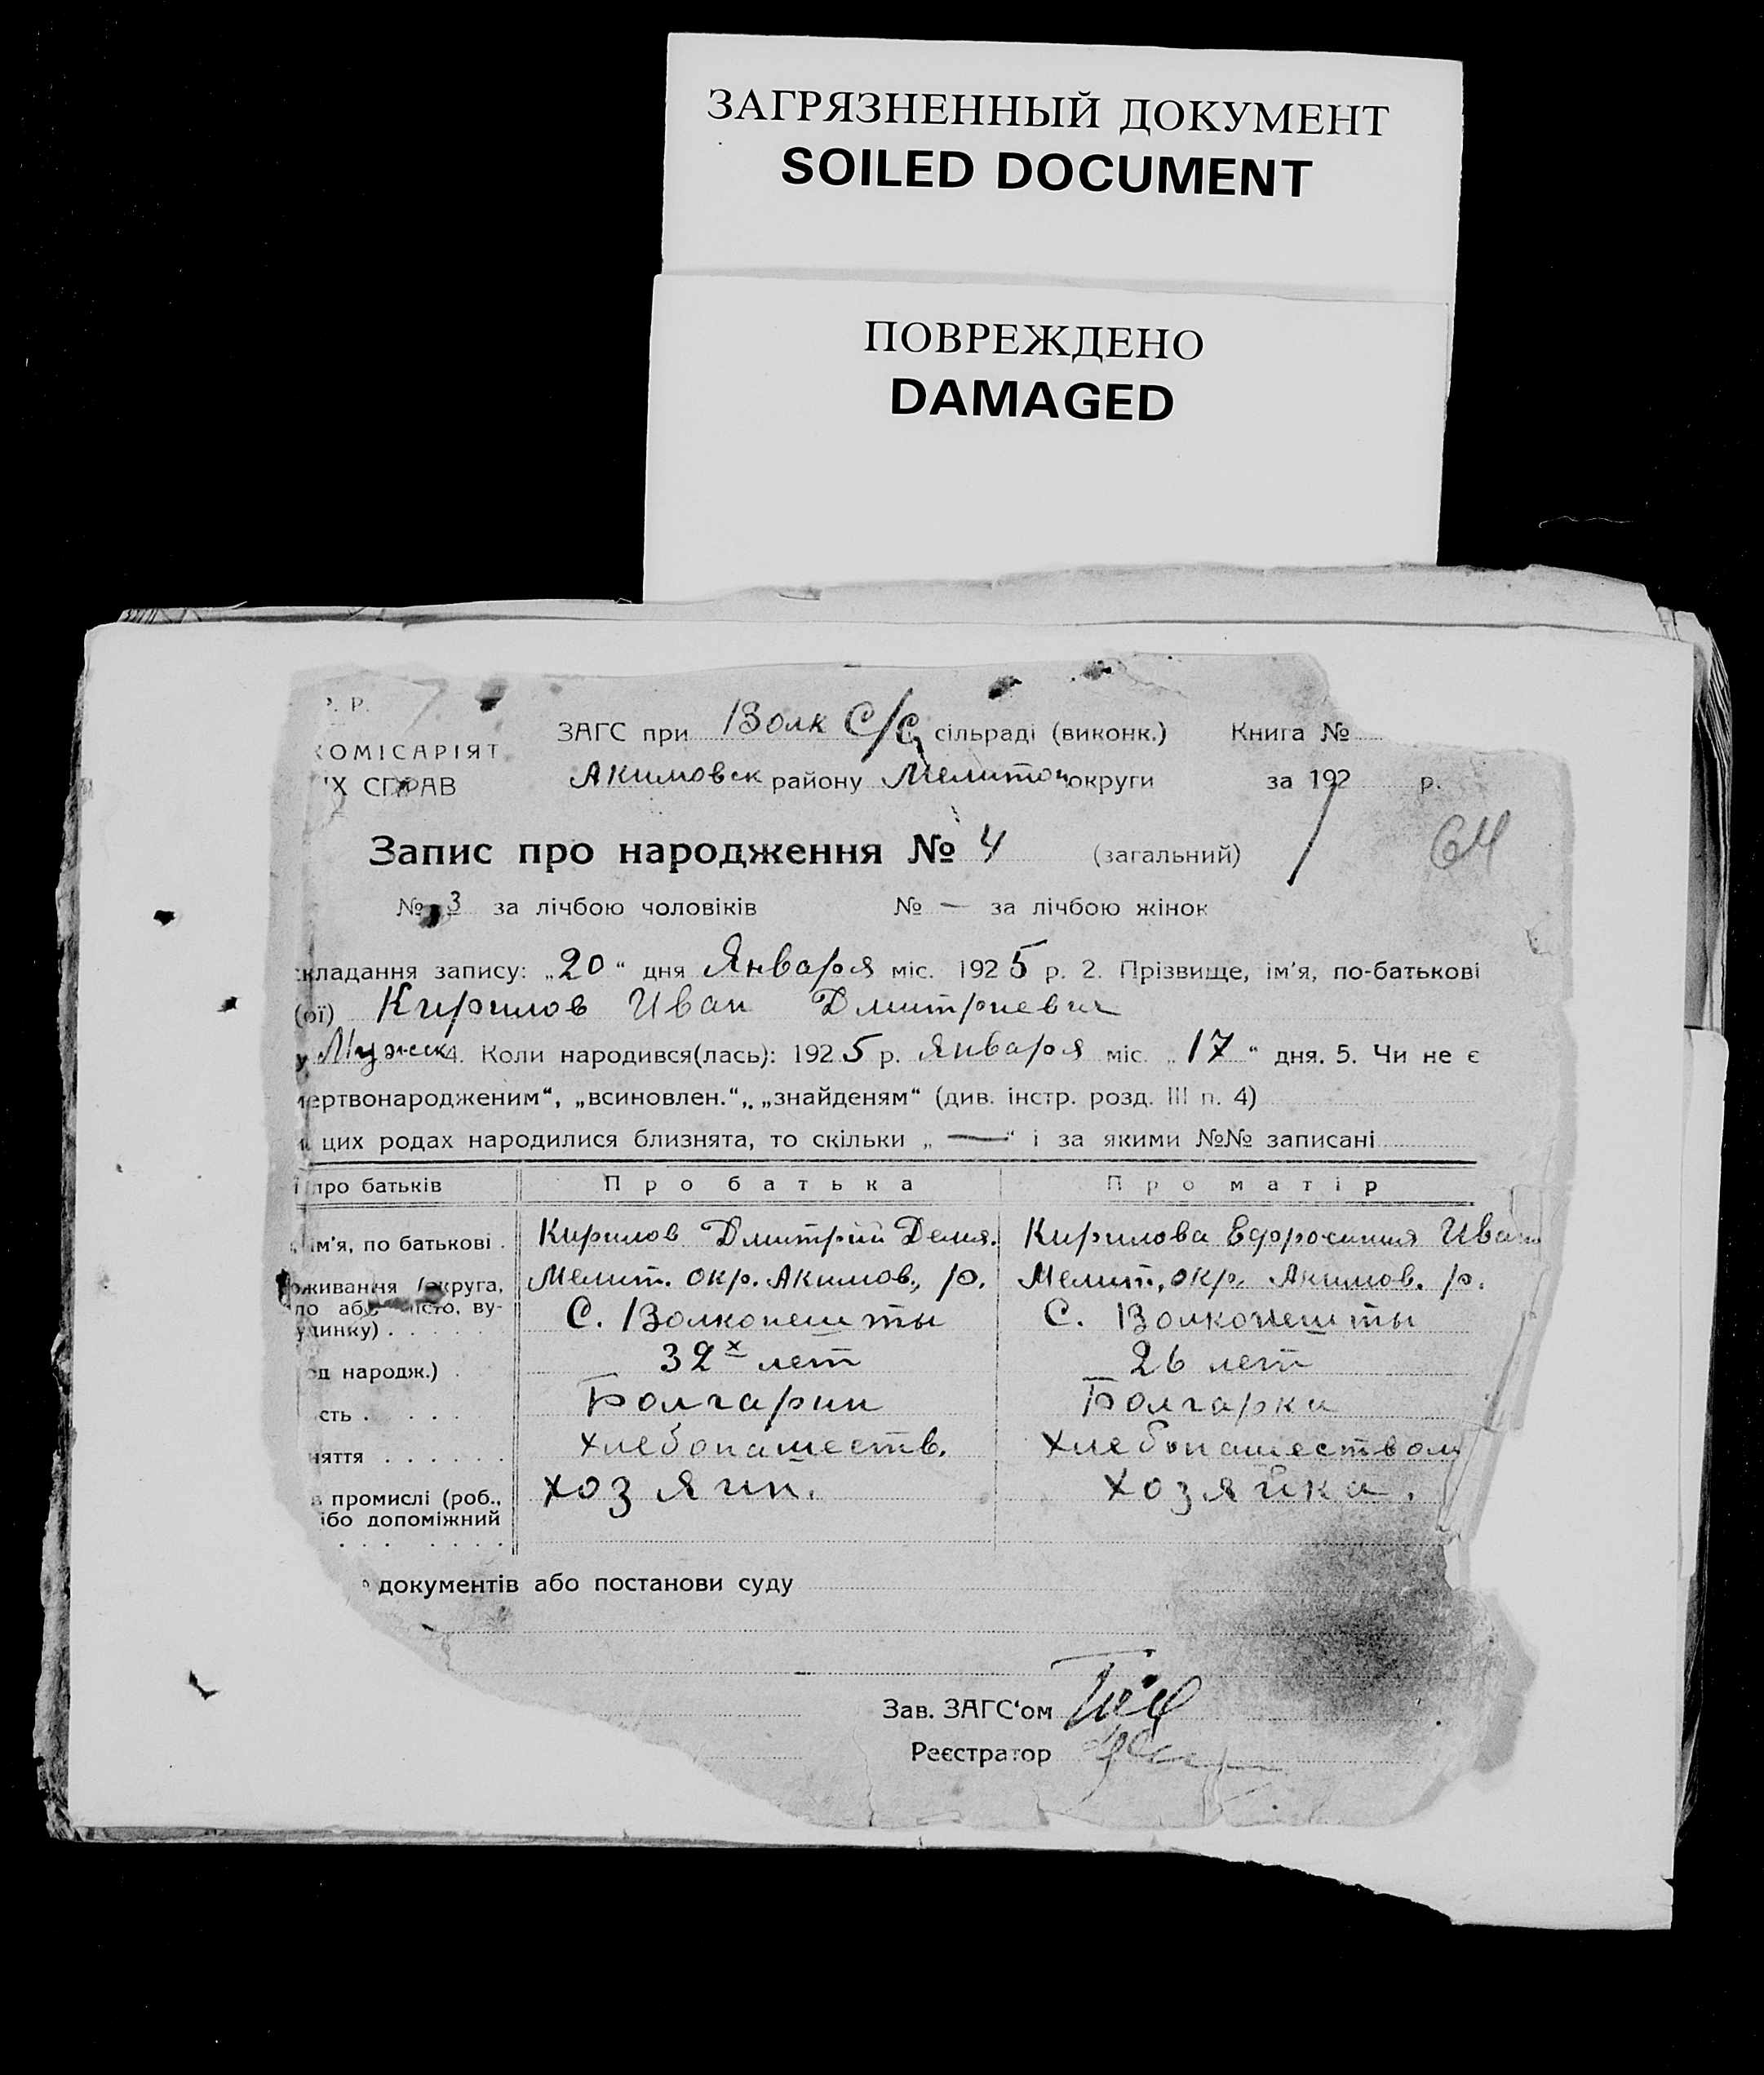 ЗАГРЯЗНЕННЫЙ ДОКУМЕНТ
SOILED DOCUMENT
ПОВРЕЖДЕНО
DAMAGED
Р.
ЗАГС при Волк С/С сільраді (виконк.) Книга №
КОМІСАРІЯТ
Акимовск району Мелитоп округи за 192 р.
ИХ СПРАВ
Запис про народження № 4 (загальний)
64
№ 3 за лічбою чоловіків № — за лічбою жінок
кладання запису: „20“ дня Января міс. 1925 р. 2. Прізвище, ім'я, по-батькові
(ої) Кирилов Иван Дмитриевич
Мужск 4. Коли народився(лась): 1925 р. Января міс. „17“ дня. 5. Чи не є
мертвонародженим“, „всиновлен.“, „знайденям“ (див. інстр. розд. III п. 4)
цих родах народилися близнята, то скільки „—“ і за якими №№ записані
про батьків Про батька Про матір
ім'я, по батькові . Кирилов Дмитрий Демя. Кирилова Ефросиния Иван
оживання (округа, Мелит. окр. Акимов., р. Мелит., окр. Акимов. р.
ло або місто, ву-
удинку) . . . . . С. Волконешты С. Волконешты
од народж.) . 32х лет 26 лет
сть . . . . Болгарин Болгарка
няття . . . . . . хлебопашеств. хлебопашеством
в промислі (роб., хозяин. хозяйка.
або допоміжний
. . . . . . .
документів або постанови суду
Зав. ЗАГС'ом
Реєстратор